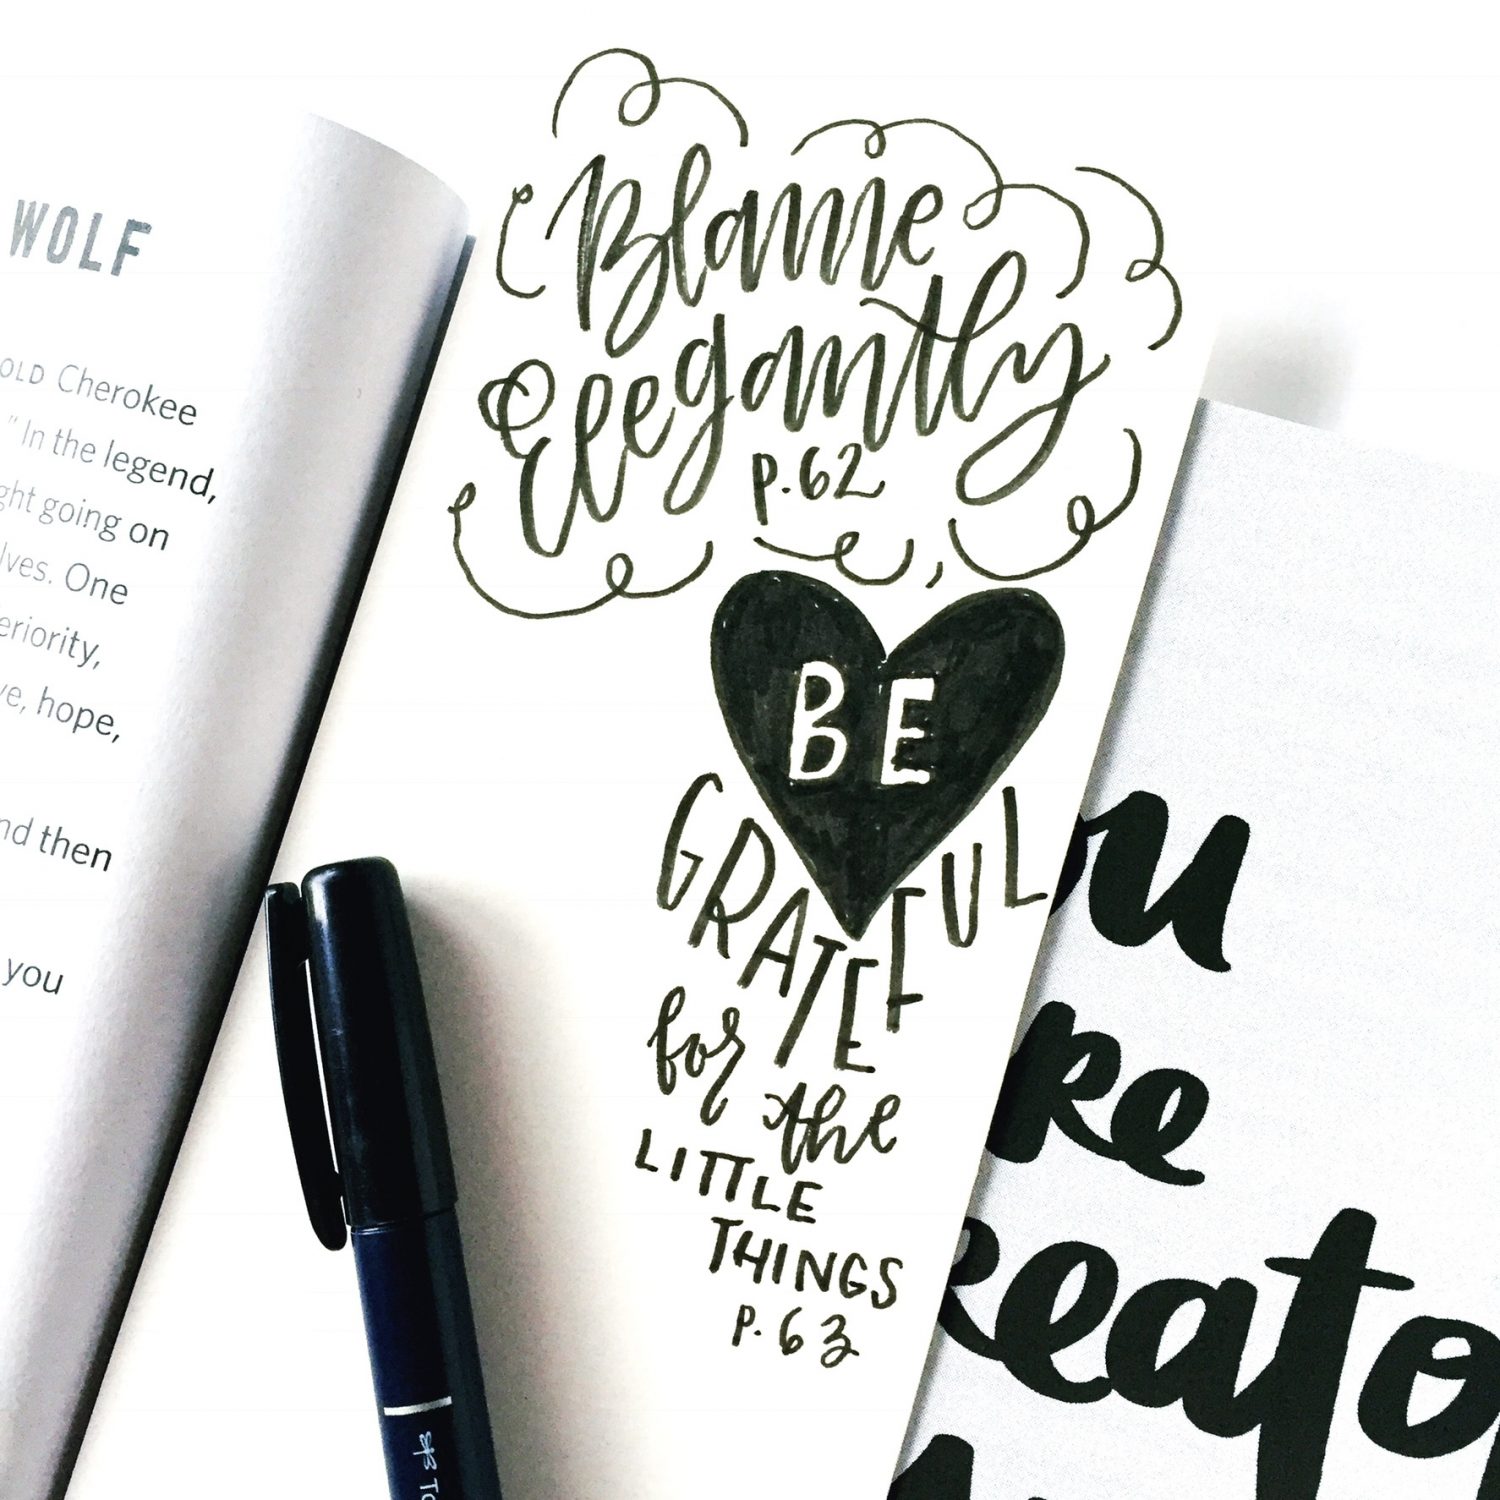 WOLF
OLD Cherokee
" In the legend,
ght going on
lves. One
eriority,
ve, hope,
nd then
you
Blame
Elegantly
p.62
BE
GRATEFUL
for the
LITTLE
THINGS
p. 63
ou
re
reator